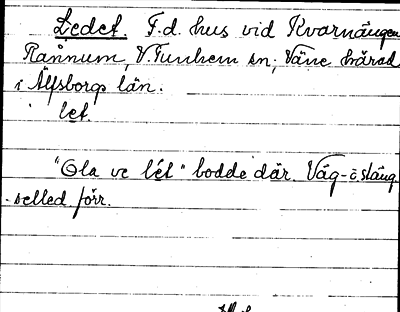 Ledet. F.d. hus vid Kvarnängen
Rånnum, V. Tunhem sn; Väne härad
i Älfsborgs län.
let.
"Ola ve lét" bodde där. Väg-o stäng
-selled förr.